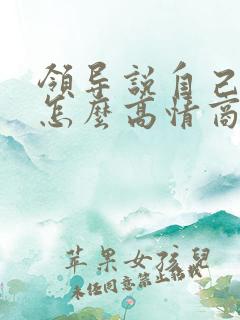 領导說自己
怎麽高情商
苹果女孩兒
未经同意禁止搬载